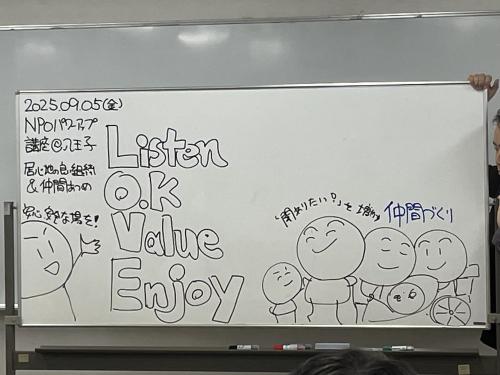 2025.09.05(金)
NPOパワーアップ
講座@八王子
居心地の良い組織
& 仲間あつめ
安心・安全な場を!
Listen
O.K
Value
Enjoy
「関わりたい?」を増やす
仲間づくり